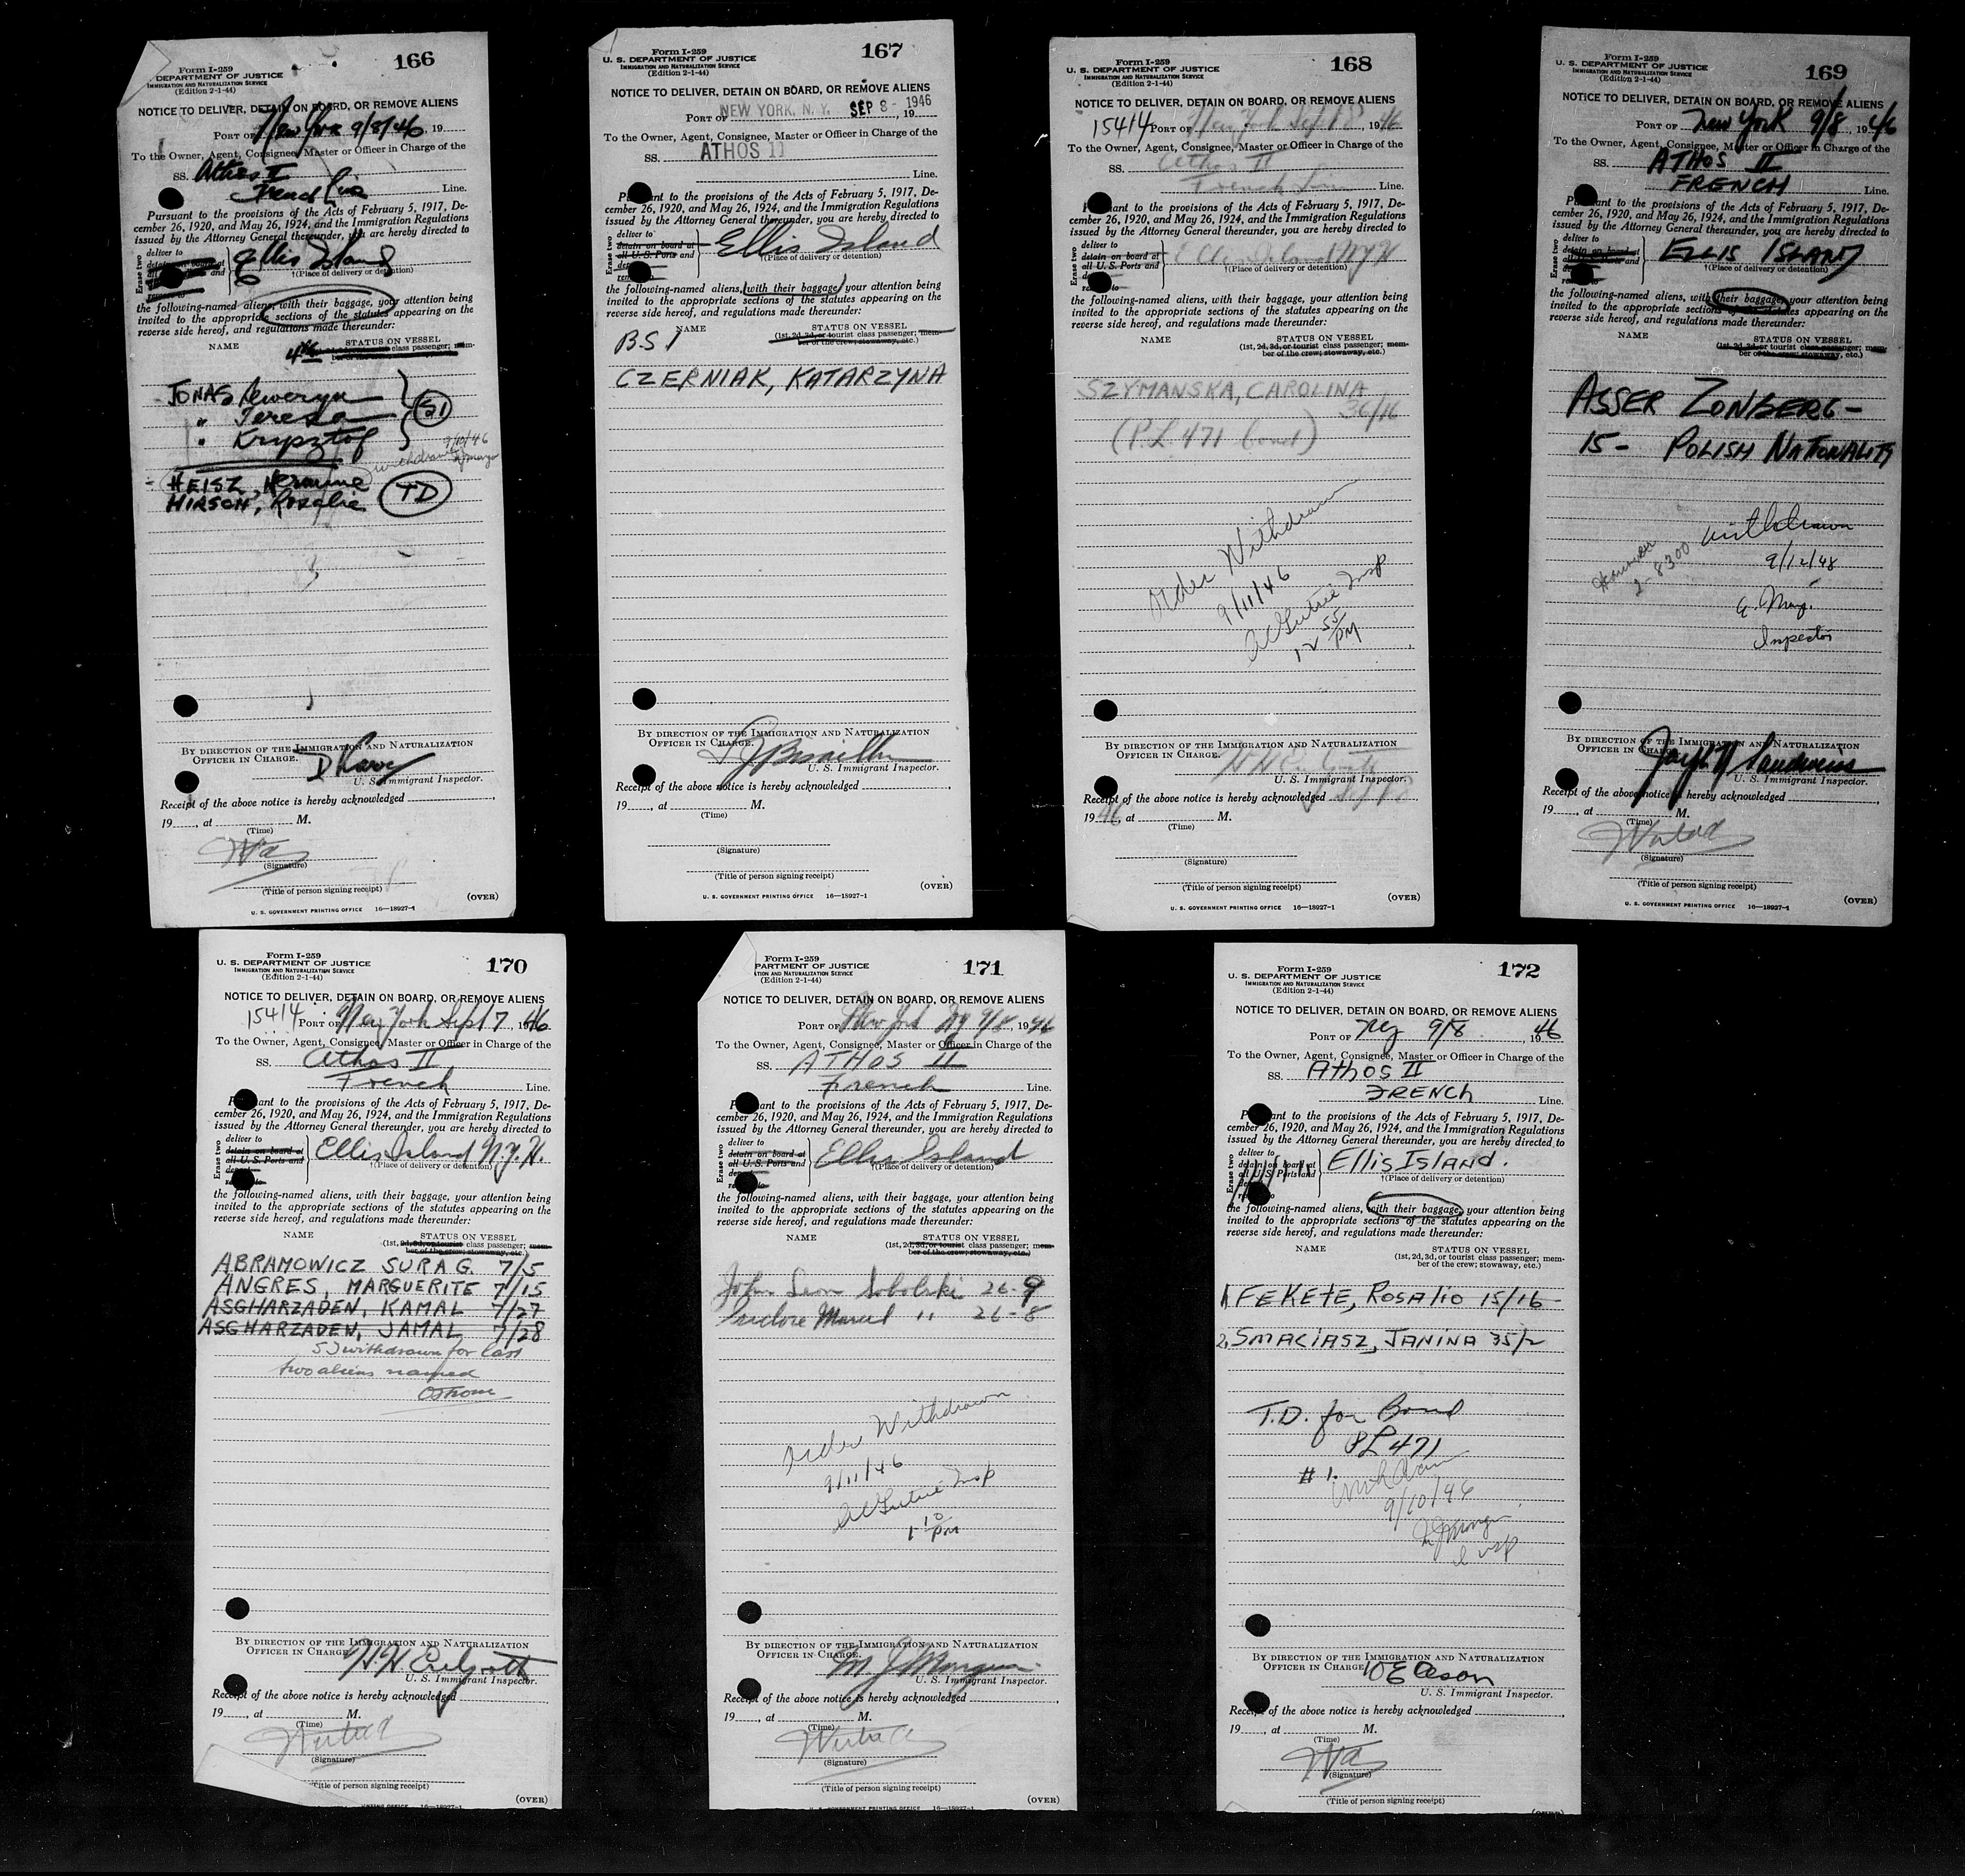 166
Form I-259
DEPARTMENT OF JUSTICE
IMMIGRATION AND NATURALIZATION SERVICE
(Edition 2-1-44)
NOTICE TO DELIVER, DETAIN ON BOARD, OR REMOVE ALIENS
PORT OF New York 9/8/46, 19
To the Owner, Agent, Consignee, Master or Officer in Charge of the
SS. Athos II
French Line Line.
Pursuant to the provisions of the Acts of February 5, 1917, De-
cember 26, 1920, and May 26, 1924, and the Immigration Regulations
issued by the Attorney General thereunder, you are hereby directed to
Erase two
deliver to
detain on board at
Ellis Island
†(Place of delivery or detention)
the following-named aliens, with their baggage, your attention being
invited to the appropriate sections of the statutes appearing on the
reverse side hereof, and regulations made thereunder:
NAME STATUS ON VESSEL
class passenger; mem-
JONAS Seweryn
" Teresa
" Krysztof
SI
9/10/46
withdrawn
HEISZ, Hermine
HIRSCH, Rosalie TD
BY DIRECTION OF THE IMMIGRATION AND NATURALIZATION
OFFICER IN CHARGE.
U. S. Immigrant Inspector.
Receipt of the above notice is hereby acknowledged
19, at M.
(Time)
(Signature)
(Title of person signing receipt)
(OVER)
U. S. GOVERNMENT PRINTING OFFICE 16—18927-1
167
Form I-259
U. S. DEPARTMENT OF JUSTICE
IMMIGRATION AND NATURALIZATION SERVICE
(Edition 2-1-44)
NOTICE TO DELIVER, DETAIN ON BOARD, OR REMOVE ALIENS
PORT OF NEW YORK, N. Y. SEP 8 - 1946, 19
To the Owner, Agent, Consignee, Master or Officer in Charge of the
SS. ATHOS 11
Line.
Pursuant to the provisions of the Acts of February 5, 1917, De-
cember 26, 1920, and May 26, 1924, and the Immigration Regulations
issued by the Attorney General thereunder, you are hereby directed to
Erase two
deliver to
detain on board at
all U.S. Ports and
Ellis Island
†(Place of delivery or detention)
the following-named aliens, with their baggage, your attention being
invited to the appropriate sections of the statutes appearing on the
reverse side hereof, and regulations made thereunder:
NAME STATUS ON VESSEL
(1st, 2d, 3d, or tourist class passenger; mem-
ber of the crew; stowaway, etc.)
BSI
CZERNIAK, KATARZYNA
BY DIRECTION OF THE IMMIGRATION AND NATURALIZATION
OFFICER IN CHARGE.
U. S. Immigrant Inspector.
Receipt of the above notice is hereby acknowledged
19, at M.
(Time)
(Signature)
(Title of person signing receipt)
(OVER)
U. S. GOVERNMENT PRINTING OFFICE 16—18927-1
168
Form I-259
U. S. DEPARTMENT OF JUSTICE
IMMIGRATION AND NATURALIZATION SERVICE
(Edition 2-1-44)
NOTICE TO DELIVER, DETAIN ON BOARD, OR REMOVE ALIENS
15414 PORT OF New York Sept 8, 1946
To the Owner, Agent, Consignee, Master or Officer in Charge of the
SS. Athos II
French Line Line.
Pursuant to the provisions of the Acts of February 5, 1917, De-
cember 26, 1920, and May 26, 1924, and the Immigration Regulations
issued by the Attorney General thereunder, you are hereby directed to
Erase two
deliver to
detain on board at
all U.S. Ports and
Ellis Island N.Y.H
†(Place of delivery or detention)
the following-named aliens, with their baggage, your attention being
invited to the appropriate sections of the statutes appearing on the
reverse side hereof, and regulations made thereunder:
NAME STATUS ON VESSEL
(1st, 2d, 3d, or tourist class passenger; mem-
ber of the crew; stowaway, etc.)
SZYMANSKA, CAROLINA
36/16
(P.L. 471 bond)
Order Withdrawn
9/11/46
Insp
12 55 PM
BY DIRECTION OF THE IMMIGRATION AND NATURALIZATION
OFFICER IN CHARGE.
U. S. Immigrant Inspector.
Receipt of the above notice is hereby acknowledged Sept 8
1946, at M.
(Time)
(Signature)
(Title of person signing receipt)
(OVER)
U. S. GOVERNMENT PRINTING OFFICE 16—18927-1
169
Form I-259
U. S. DEPARTMENT OF JUSTICE
IMMIGRATION AND NATURALIZATION SERVICE
(Edition 2-1-44)
NOTICE TO DELIVER, DETAIN ON BOARD, OR REMOVE ALIENS
PORT OF New York 9/8, 1946
To the Owner, Agent, Consignee, Master or Officer in Charge of the
SS. ATHOS II
FRENCH Line.
Pursuant to the provisions of the Acts of February 5, 1917, De-
cember 26, 1920, and May 26, 1924, and the Immigration Regulations
issued by the Attorney General thereunder, you are hereby directed to
Erase two
deliver to
ELLIS ISLAND
†(Place of delivery or detention)
the following-named aliens, with their baggage, your attention being
invited to the appropriate sections of the statutes appearing on the
reverse side hereof, and regulations made thereunder:
NAME STATUS ON VESSEL
(1st, 2d, 3d, or tourist class passenger; mem-
ber of the crew; stowaway, etc.)
ASSER ZONBERG-
15- POLISH NATIONALITY
withdrawn
2-8300
9/12/46
Inspector
BY DIRECTION OF THE IMMIGRATION AND NATURALIZATION
OFFICER IN CHARGE.
U. S. Immigrant Inspector.
Receipt of the above notice is hereby acknowledged
19, at M.
(Time)
(Signature)
(Title of person signing receipt)
(OVER)
U. S. GOVERNMENT PRINTING OFFICE 16—18927-1
170
Form I-259
U. S. DEPARTMENT OF JUSTICE
IMMIGRATION AND NATURALIZATION SERVICE
(Edition 2-1-44)
NOTICE TO DELIVER, DETAIN ON BOARD, OR REMOVE ALIENS
15414 PORT OF New York Sept 7, 1946
To the Owner, Agent, Consignee, Master or Officer in Charge of the
SS. Athos II
French Line.
Pursuant to the provisions of the Acts of February 5, 1917, De-
cember 26, 1920, and May 26, 1924, and the Immigration Regulations
issued by the Attorney General thereunder, you are hereby directed to
Erase two
deliver to
detain on board at
all U.S. Ports and
Ellis Island N.Y.H.
†(Place of delivery or detention)
the following-named aliens, with their baggage, your attention being
invited to the appropriate sections of the statutes appearing on the
reverse side hereof, and regulations made thereunder:
NAME STATUS ON VESSEL
(1st, 2d, 3d, or tourist class passenger; mem-
ber of the crew; stowaway, etc.)
ABRAMOWICZ SURA G. 7/5
ANGRES, MARGUERITE 7/15
ASGHARZADEN, KAMAL 7/27
ASGHARZADEN, JAMAL 7/28
SI withdrawn for last
two aliens named
BY DIRECTION OF THE IMMIGRATION AND NATURALIZATION
OFFICER IN CHARGE.
U. S. Immigrant Inspector.
Receipt of the above notice is hereby acknowledged
19, at M.
(Time)
(Signature)
(Title of person signing receipt)
(OVER)
171
Form I-259
PARTMENT OF JUSTICE
TION AND NATURALIZATION SERVICE
(Edition 2-1-44)
NOTICE TO DELIVER, DETAIN ON BOARD, OR REMOVE ALIENS
PORT OF New York NY 9/8, 1946
To the Owner, Agent, Consignee, Master or Officer in Charge of the
SS. ATHOS II
French Line.
Pursuant to the provisions of the Acts of February 5, 1917, De-
cember 26, 1920, and May 26, 1924, and the Immigration Regulations
issued by the Attorney General thereunder, you are hereby directed to
Erase two
deliver to
detain on board at
all U.S. Ports and
Ellis Island
†(Place of delivery or detention)
the following-named aliens, with their baggage, your attention being
invited to the appropriate sections of the statutes appearing on the
reverse side hereof, and regulations made thereunder:
NAME STATUS ON VESSEL
(1st, 2d, 3d, or tourist class passenger; mem-
ber of the crew; stowaway, etc.)
John Leon Sobolski 26-9
Isidore Marcel " 26-8
Order Withdrawn
9/11/46
Insp
1 10 PM
BY DIRECTION OF THE IMMIGRATION AND NATURALIZATION
OFFICER IN CHARGE.
U. S. Immigrant Inspector.
Receipt of the above notice is hereby acknowledged
19, at M.
(Time)
(Signature)
(Title of person signing receipt)
(OVER)
172
Form I-259
U. S. DEPARTMENT OF JUSTICE
IMMIGRATION AND NATURALIZATION SERVICE
(Edition 2-1-44)
NOTICE TO DELIVER, DETAIN ON BOARD, OR REMOVE ALIENS
PORT OF NY 9/8, 1946
To the Owner, Agent, Consignee, Master or Officer in Charge of the
SS. Athos II
FRENCH Line.
Pursuant to the provisions of the Acts of February 5, 1917, De-
cember 26, 1920, and May 26, 1924, and the Immigration Regulations
issued by the Attorney General thereunder, you are hereby directed to
Erase two
deliver to
detain on board at
all U.S. Ports and
Ellis ISLAND.
†(Place of delivery or detention)
the following-named aliens, with their baggage, your attention being
invited to the appropriate sections of the statutes appearing on the
reverse side hereof, and regulations made thereunder:
NAME STATUS ON VESSEL
(1st, 2d, 3d, or tourist class passenger; mem-
ber of the crew; stowaway, etc.)
1 FEKETE, ROSALIO 15/16
2. SMACIASZ, JANINA 35/2
T.D. for Bond
PL 471
# 1. withdrawn
9/10/46
Insp
BY DIRECTION OF THE IMMIGRATION AND NATURALIZATION
OFFICER IN CHARGE.
U. S. Immigrant Inspector.
Receipt of the above notice is hereby acknowledged
19, at M.
(Time)
(Signature)
(Title of person signing receipt)